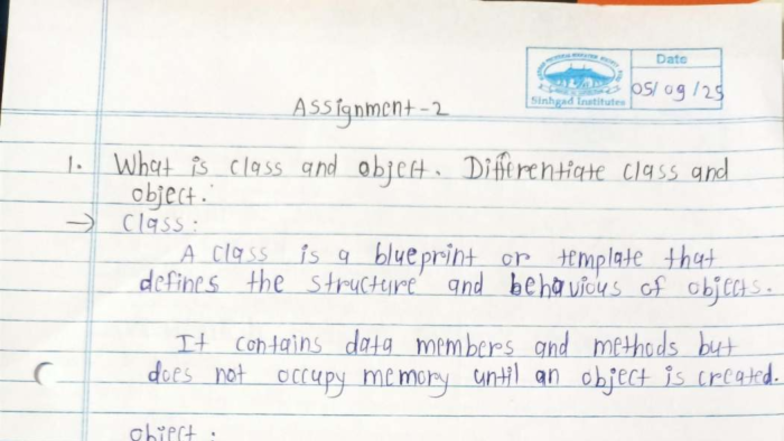 Date
Sinhgad Institutes
05/09/25
Assignment-2
1. What is class and object. Differentiate class and
object.
→ Class:
A class is a blueprint or template that
defines the structure and behavious of objects.
It contains data members and methods but
does not occupy memory until an object is created.
object: